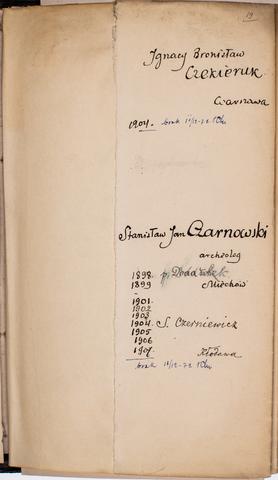 19
Ignacy Bronisław
Czekieruk
Warszawa
1904. brak
Stanisław Jan Czarnowski
archeolog
1898 p.
1899 Miechów
1901
1902
1903
1904 S. Czerniewicz
1905
1906
1907 Kłodawa
brak